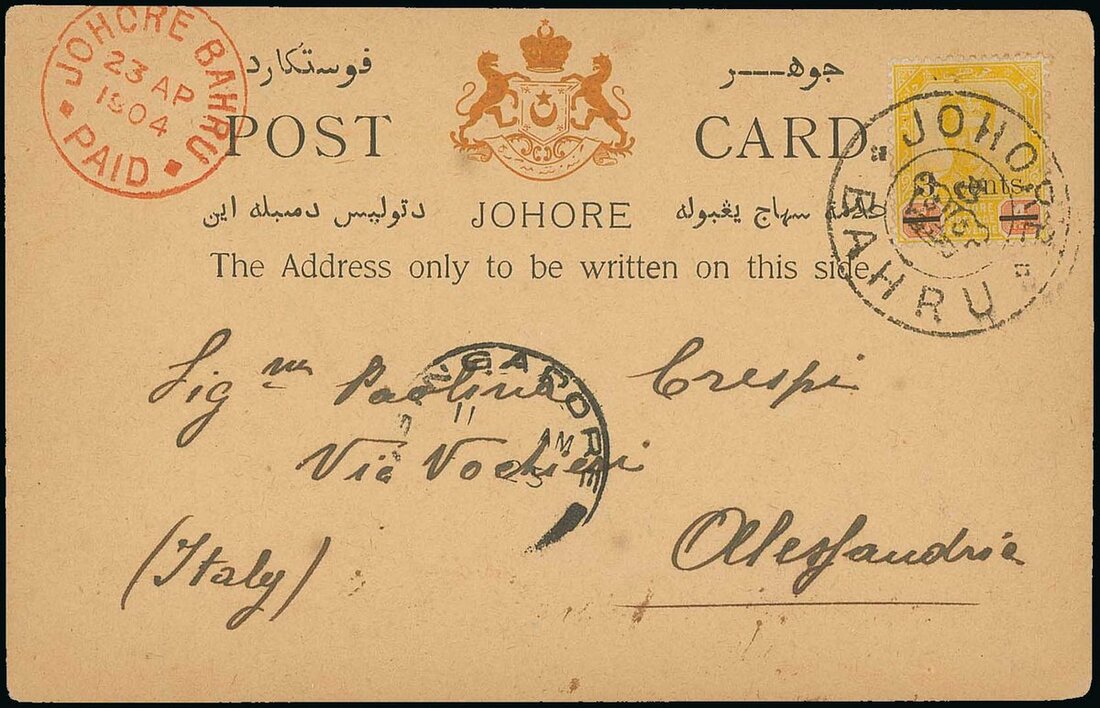 JOHORE BAHRU
23 AP
1904
PAID
فوستكارد جوهر
POST CARD
دتوليس دمبله اين JOHORE سهاج يڠبوله
The Address only to be written on this side
3 cents.
JOHORE
BAHRU
SINGAPORE
11 AM
Sig.na Paolina Crespi
Via Vochieri
(Italy) Alessandria